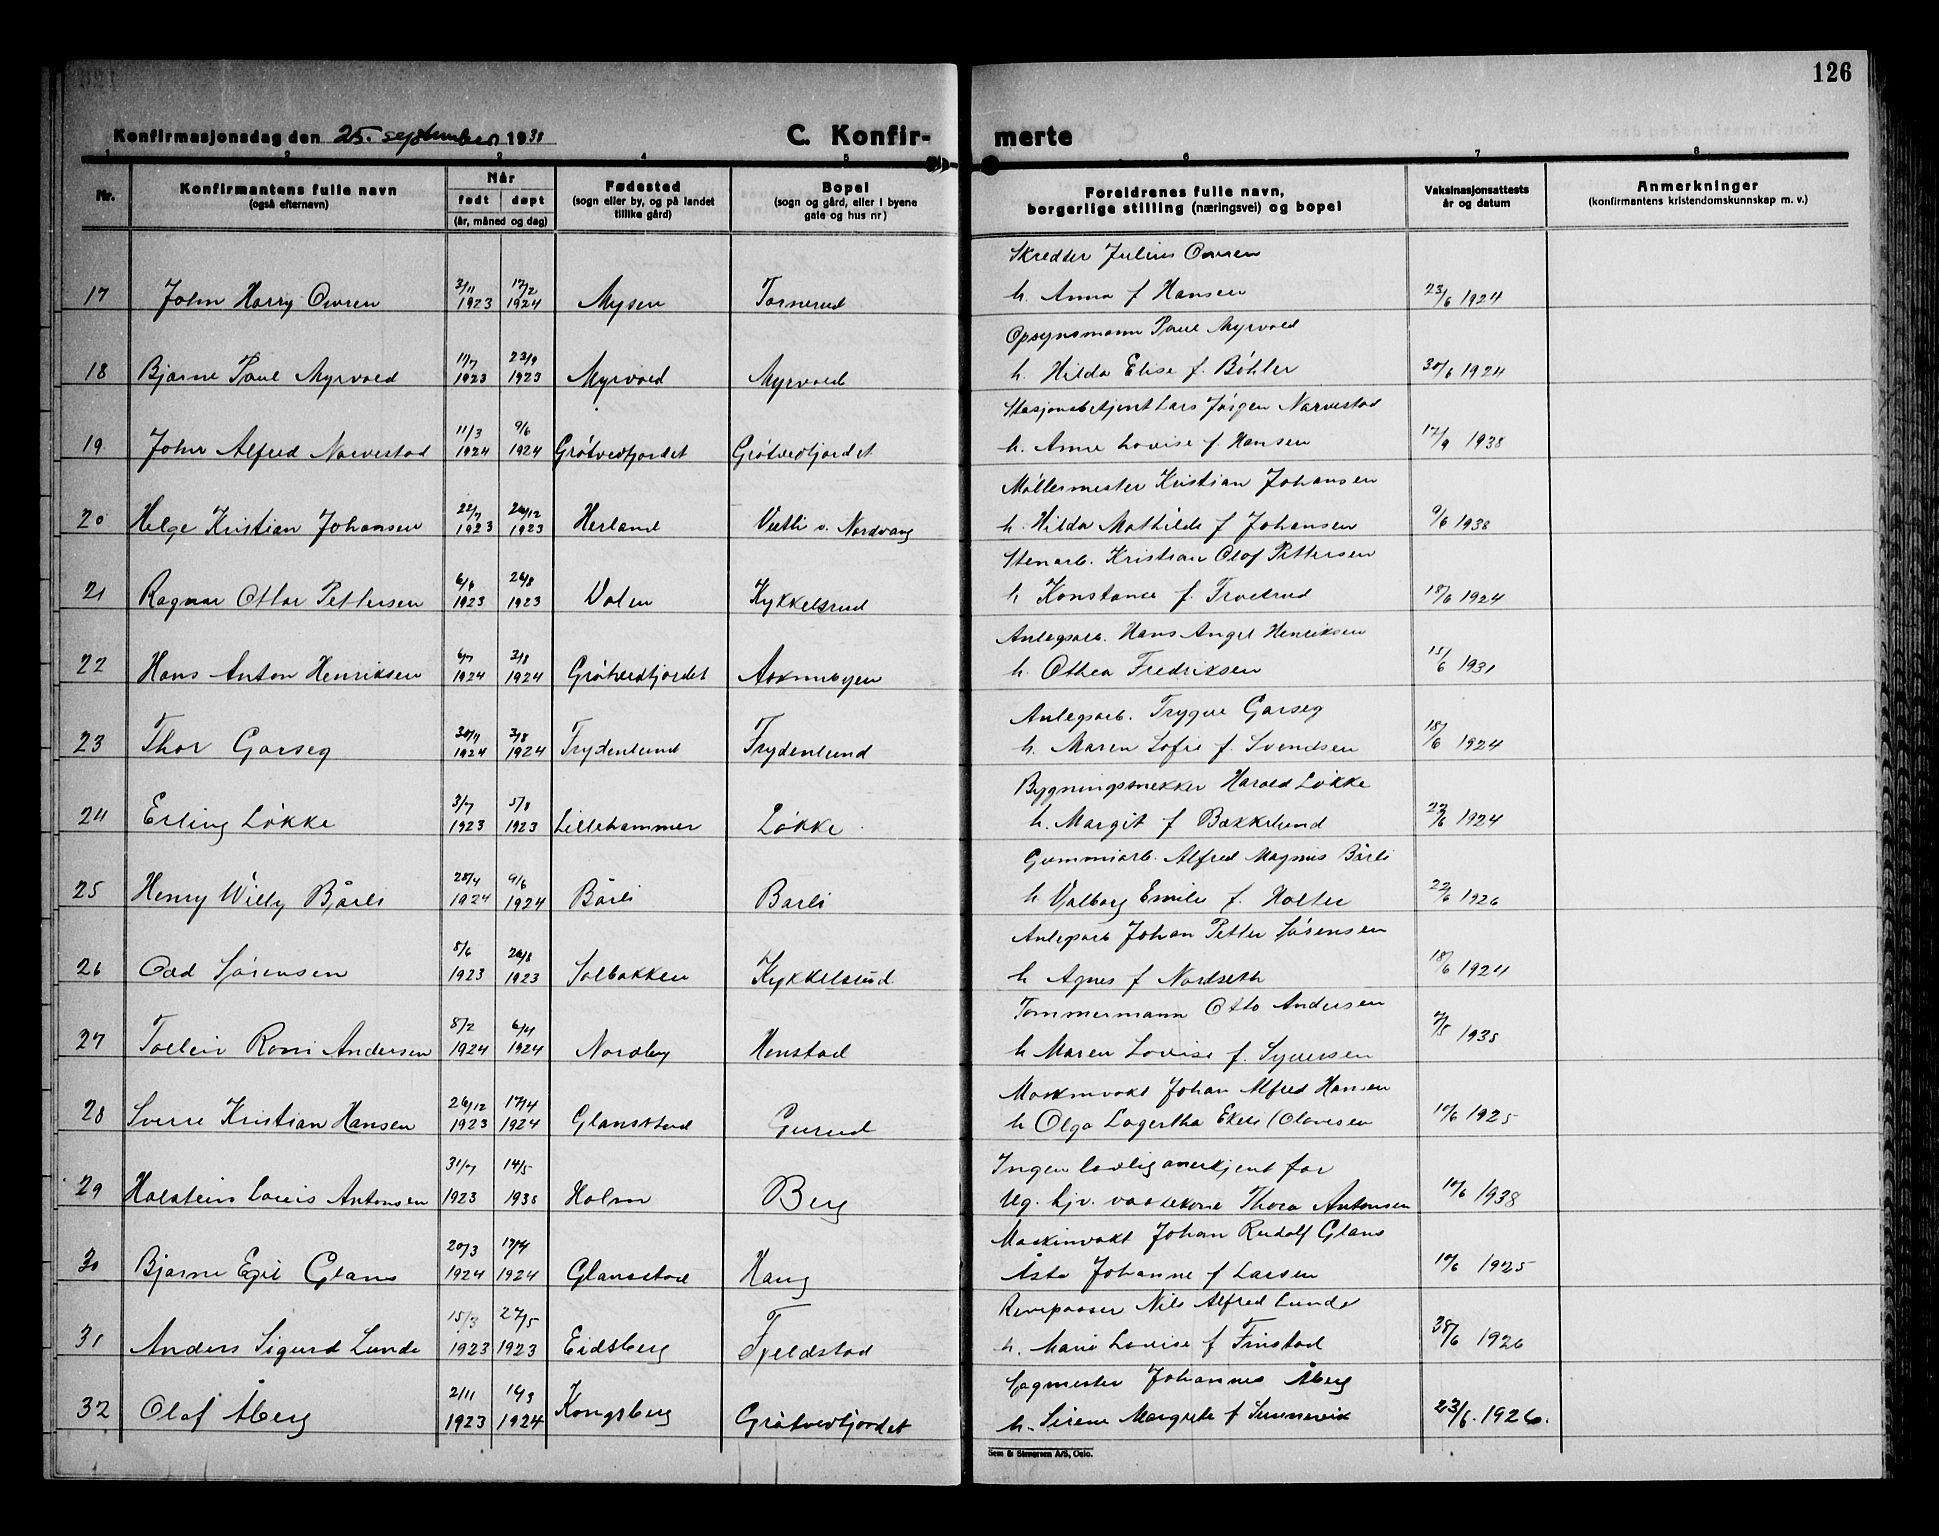 126
Konfirmasjonsdag den 25. september 1938
C. Konfir-
merte
1 2 3 4 5 6 7 8
Nr.
Konfirmantens fulle navn
(også efternavn)
Når
født døpt
(år, måned og dag)
Fødested
(sogn eller by, og på landet
tillike gård)
Bopel
(sogn og gård, eller i byene
gate og hus nr)
Foreldrenes fulle navn,
borgerlige stilling (næringsvei) og bopel
Vaksinasjonsattests
år og datum
Anmerkninger
(konfirmantens kristendomskunnskap m. v.)
Skredder Julius Ovren
17 John Harry Ovren 3/11 1923 17/2 1924 Mysen Tornerud h. Anna f Hansen 23/6 1924
Opsynsmann Paul Myrvold
18 Bjarne Paul Myrvold 11/7 1923 23/9 1923 Myrvold Myrvold h. Hilda Elise f. Bøhler 30/6 1924
Stasjonsbetjent Lars Jørgen Narvestad
19 John Alfred Narvestad 11/3 1924 9/6 1924 Grøtvedtjordet Grøtvedtjordet h. Anna Lovise f Hansen 17/9 1938
Møllermester Kristian Johansen
20 Helge Kristian Johansen 22/7 1923 26/12 1923 Herland Vestli v. Nordvang h. Hilda Mathilde f Johansen 9/6 1938
Stenarb. Kristian Olaf Pettersen
21 Ragnar Ottar Pettersen 6/6 1923 26/8 1923 Volen Kykkelsrud h Konstance f. Troetrud 18/6 1924
Anlegsarb. Hans Angel Henriksen
22 Hans Anton Henriksen 6/7 1924 3/8 1924 Grøtvedtjordet Askmuyen h. Othea Fredriksen 15/6 1931
Anlegsarb. Trygve Garseg
23 Thor Garseg 1924 3/8 1924 Frydenlund Frydenlund h. Maren Sofie f. Svendsen 18/6 1924
Bygningssnekker Harald Løkke
24 Erling Løkke 3/7 1923 5/8 1923 Lillehammer Løkke h. Margit f Bækkelund 23/6 1924
Gummiarb. Alfred Magnus Bårli
25 Henry Willy Bjårli 28/4 1924 9/6 1924 Bårli Barli h Valborg Emilie f. Holter 22/6 1926
Anlegsarb Johan Petter Sørensen
26 Odd Sørensen 8/6 1923 26/8 1923 Solbakken Kykkelsrud h Agnes f Nordseth 18/6 1924
Tømmermann Otto Andersen
27 Tollein Roni Andersen 8/2 1924 6/4 1924 Nordby Henstad h Maren Lovise f. Syversen 7/5 1938
Maskinvakt Johan Alfred Hansen
28 Sverre Kristian Hansen 26/12 1923 17/4 1924 Glansstad Gurud h Olga Lagertha Ekeli (Olavesen 10/6 1925
Ingen lovlig anerkjent far
29 Holstein Louis Antonsen 31/7 1923 14/5 1938 Holm Berg Ug. hjv. vaskekone Thora Antonsen 10/6 1938
Maskinvakt Johan Rudolf Glans
30 Bjarne Egil Glans 20/3 1924 17/4 1924 Glansstad Haug Åsta Johanne f Larsen 10/6 1925
Revepasser Nils Alfred Lunde
31 Anders Sigurd Lunde 15/3 1923 27/5 1923 Eidsberg Fjeldstad h. Marie Lovise f Finstad 1926
Sagmester Johannes Åberg
32 Olaf Åberg 2/11 1923 16/3 1924 Kongsberg Grøtvedtjordet h. Sirene Margrete f Sunnevik 23/6. 1926.
Sem & Stenersen A/S, Oslo.